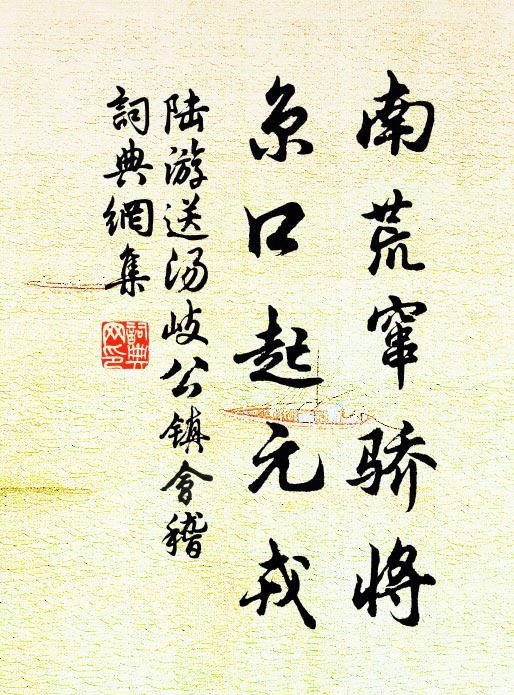 南荒窜骄将
京口起元戎
陆游送汤岐公镇會稽
詞典網集
詞典网印